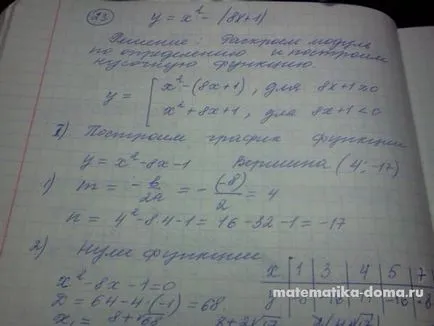 23 y = x² - |8x+1|
Решение: Раскроем модуль
по определению и построим
кусочную функцию.
y = [ x² - (8x+1), для 8x+1≥0
x² + 8x+1, для 8x+1<0
I) Построим график функции
y = x² - 8x - 1 Вершина (4; -17)
1) m = -b/2a = -(-8)/2 = 4
n = 4² - 8·4 - 1 = 16 - 32 - 1 = -17
2) Нули функции
x² - 8x - 1 = 0
x | 1 | 3 | 4 | 5 | 7
D = 64 - 4·(-1) = 68.
matematika-doma.ru